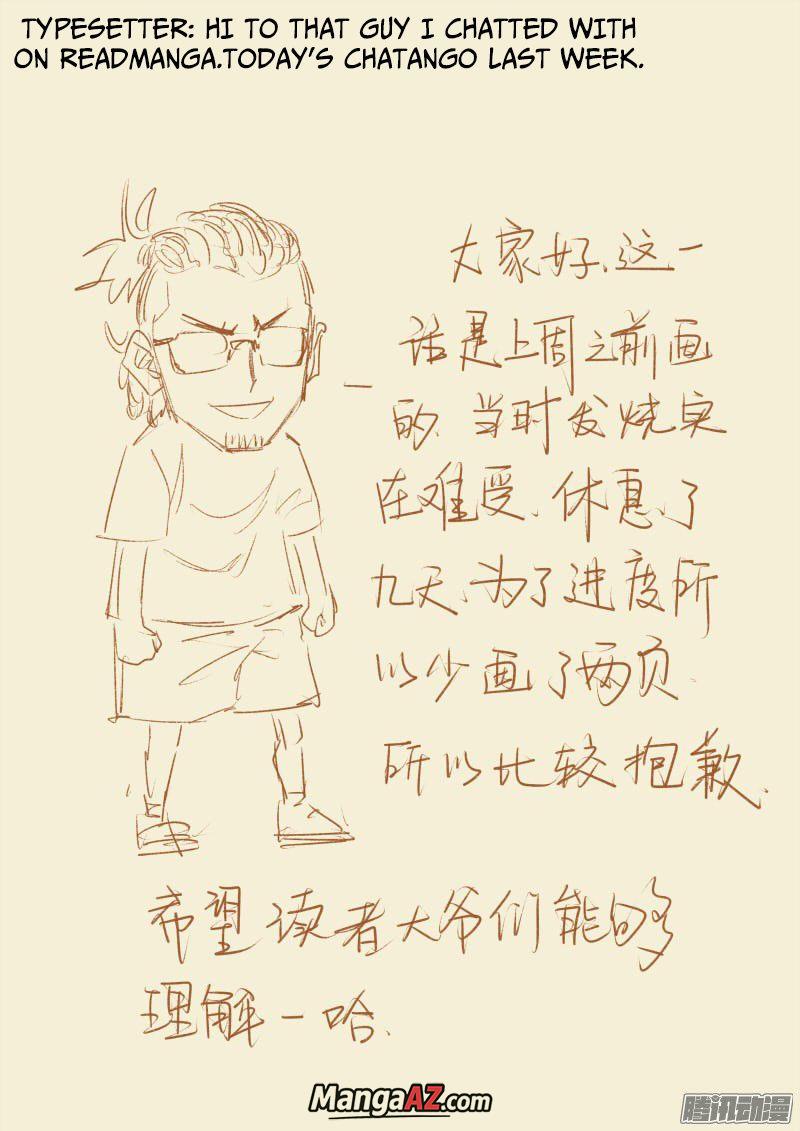 TYPESETTER: HI TO THAT GUY I CHATTED WITH
ON READMANGA.TODAY'S CHATANGO LAST WEEK.
大家好、这一
话是上周之前画
的、当时发烧实
在难受、休息了
九天、为了进度所
以少画了两页、
所以比较抱歉、
希望读者大爷们能够
理解一哈、
MangaAZ.com
腾讯动漫